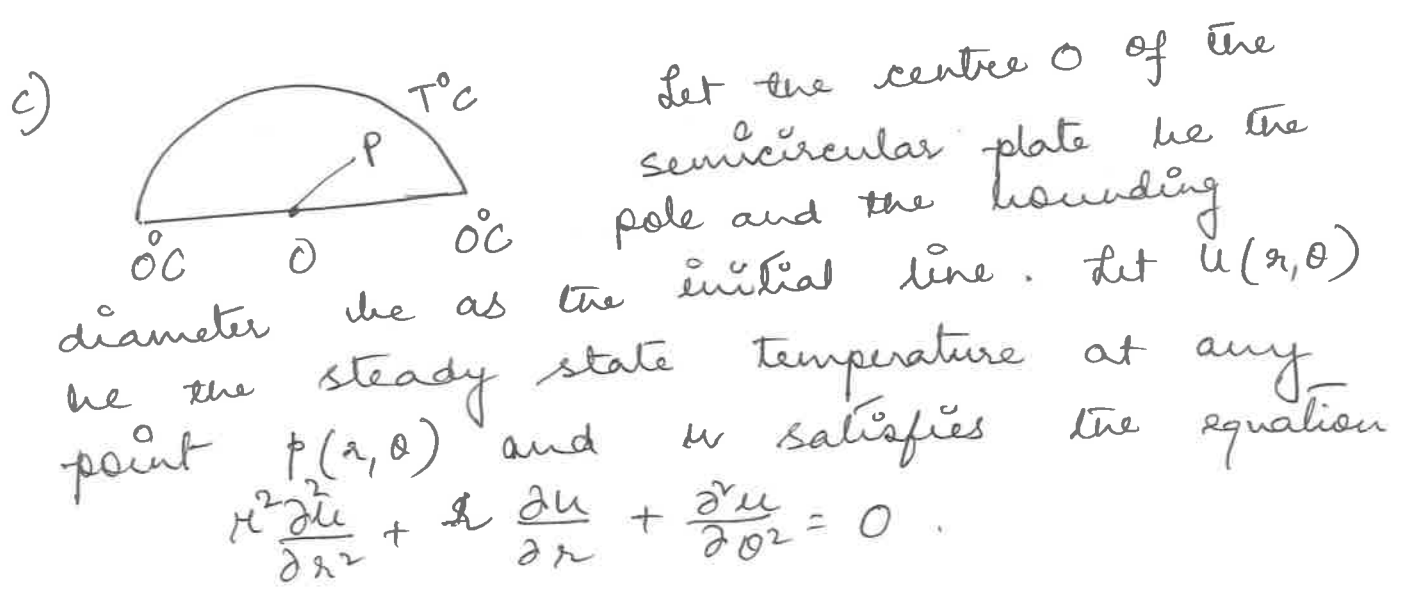 c)
T°C
P
0°C O 0°C
Let the centre O of the
semicircular plate be the
pole and the bounding
diameter be as the initial line. Let u(r,θ)
be the steady state temperature at any
point p(r,θ) and u satisfies the equation
r² ∂²u/∂r² + r ∂u/∂r + ∂²u/∂θ² = 0.